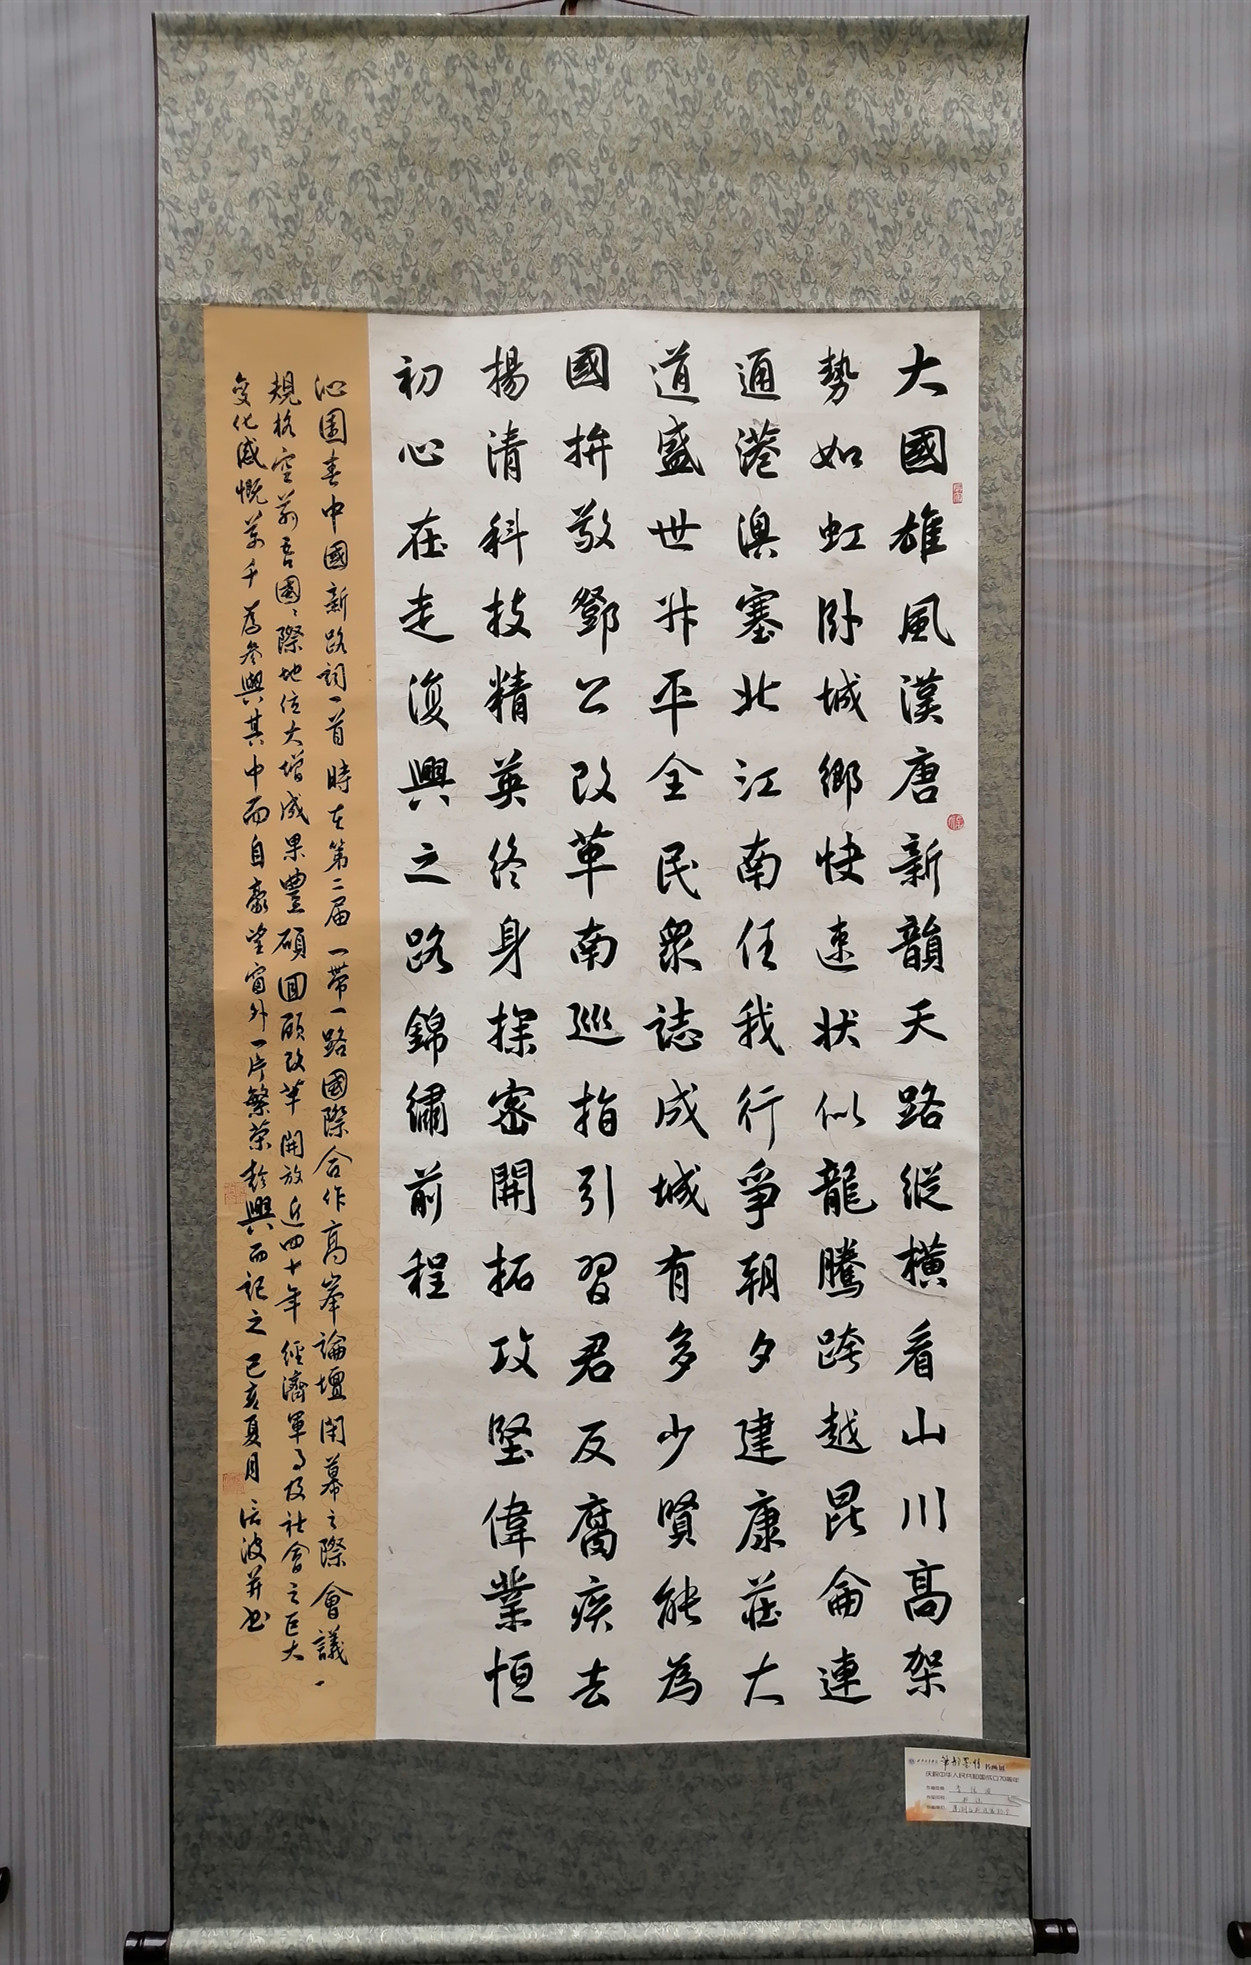 大國雄風漢唐新韻天路縱橫看山川高架
勢如虹卧城鄉快速狀似龍騰跨越昆侖連
通港澳塞北江南任我行爭朝夕建康莊大
道盛世昇平全民眾誌成城有多少賢能為
國拚敬鄧公改革南巡指引習君反腐疾去
揚清科技精英終身探密開拓攻堅偉業恒
初心在走復興之路錦繡前程
沁園春中國新路詞一首時在第二届一帶一路國際合作高峯論壇閉幕之際會議
規格空前吾國際地位大增成果豐碩回顧改革開放近四十年經濟軍事及社會之巨大
變化感慨萬千為參與其中而自豪望窗外一片繁榮於興而記之己亥夏月 波並書
书画展
庆祝中华人民共和国成立70周年